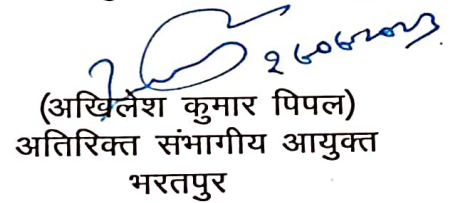 (अखिलेश कुमार पिपल)
अतिरिक्त संभागीय आयुक्त
भरतपुर